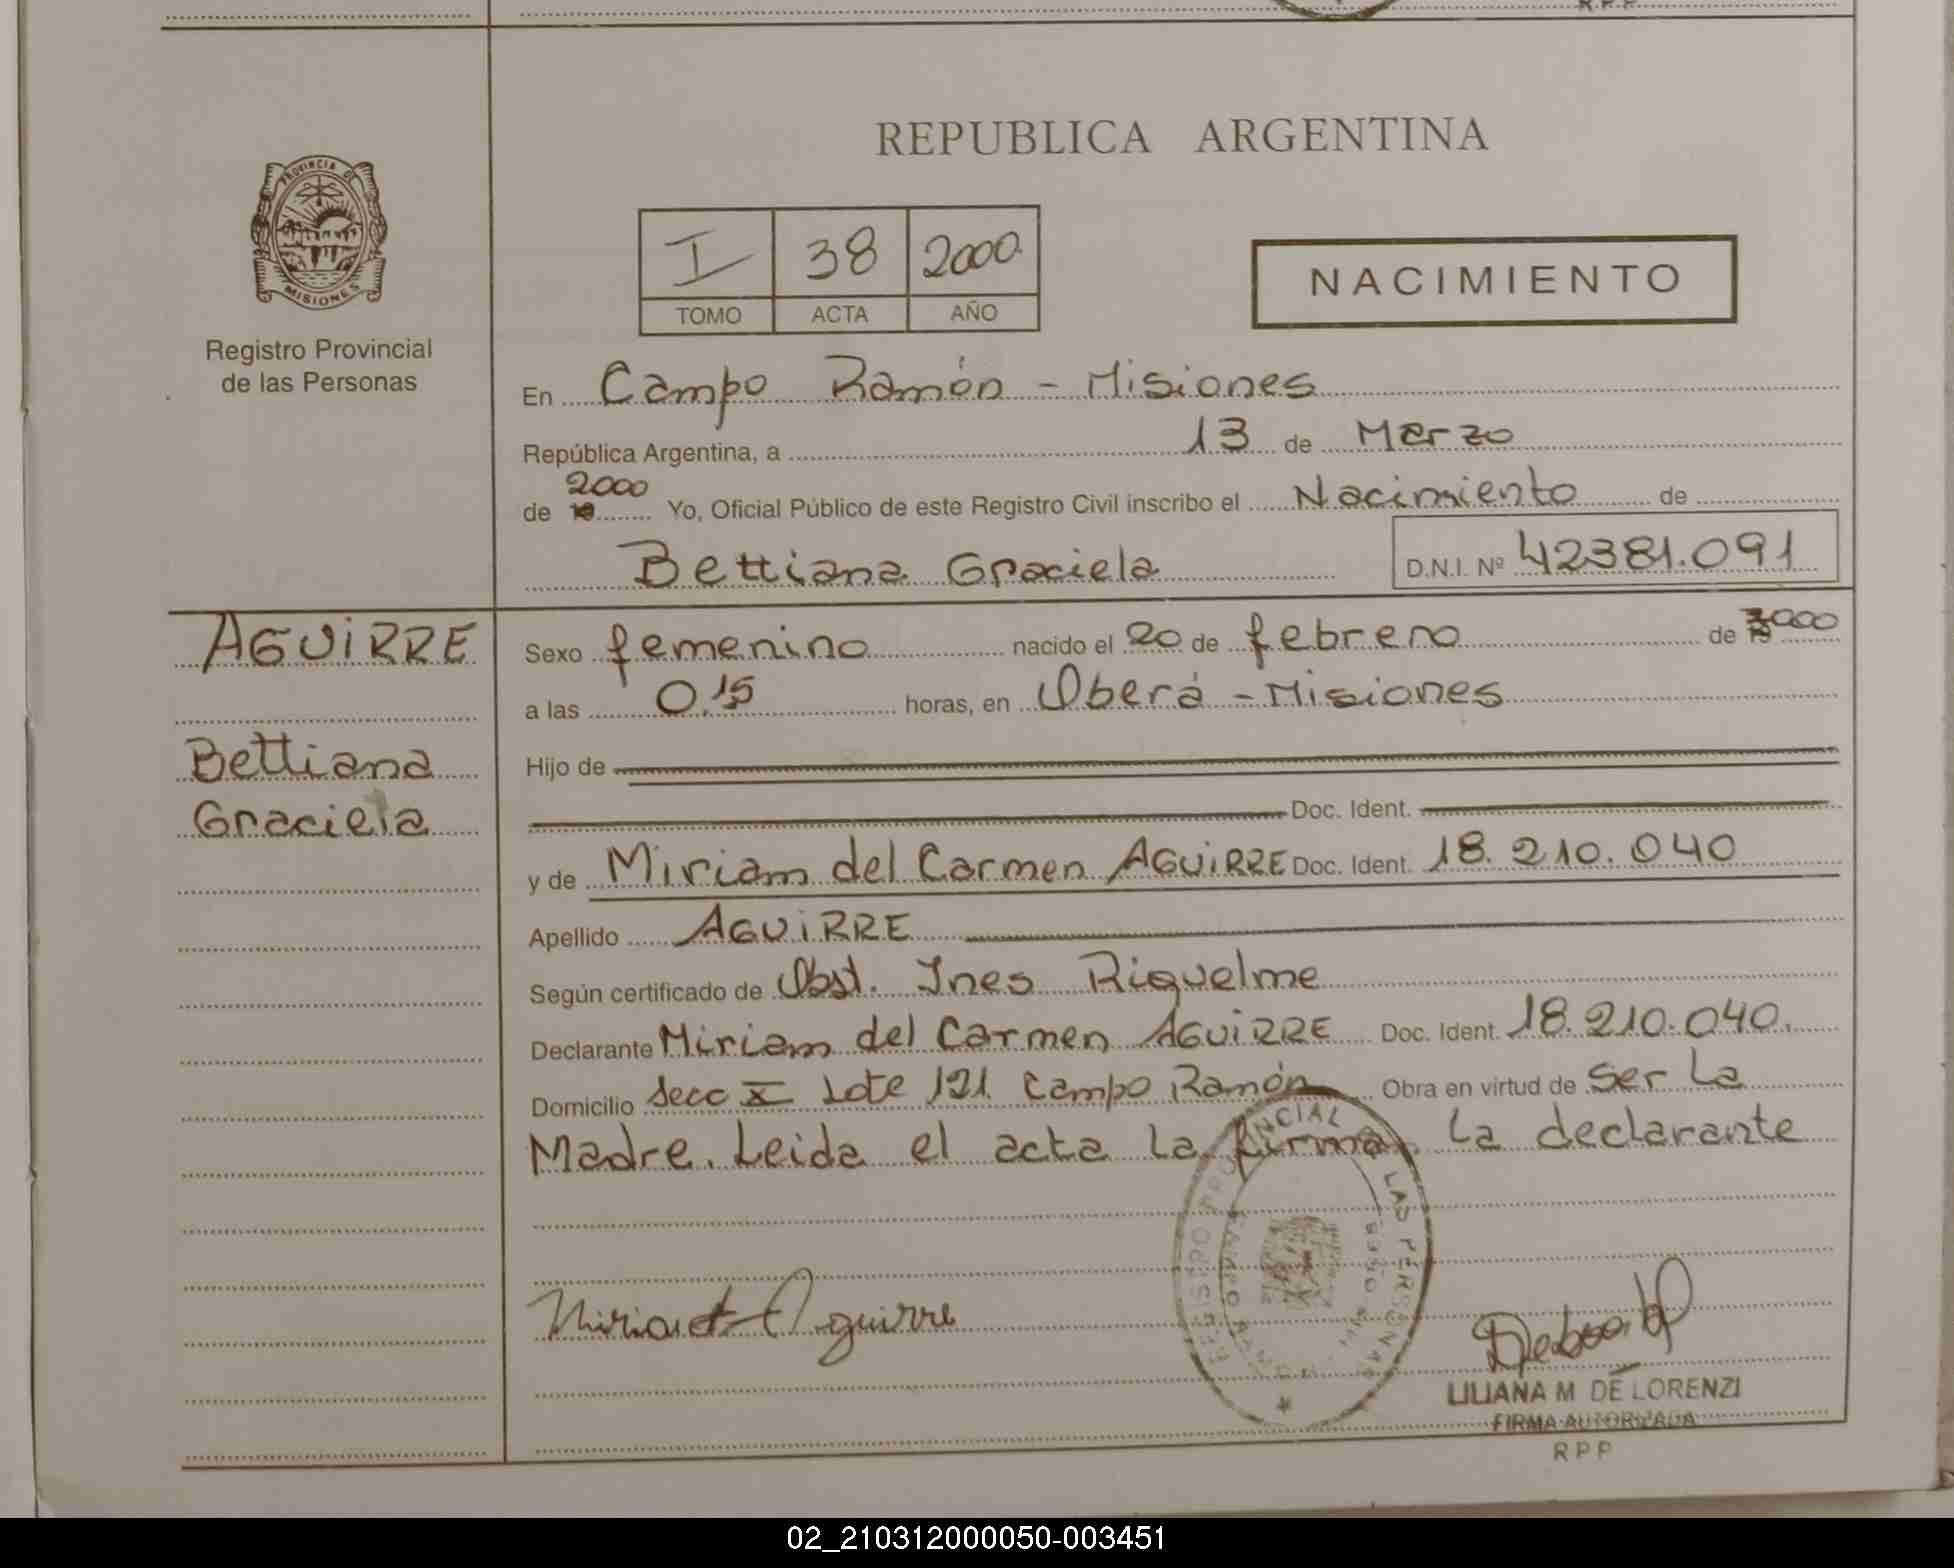 R.P.P
REPUBLICA ARGENTINA
PROVINCIA DE
MISIONES
Registro Provincial
de las Personas
I 38 2000
TOMO ACTA AÑO
NACIMIENTO
En Campo Ramón - Misiones
República Argentina, a 13 de Marzo
2000
de 19 Yo, Oficial Público de este Registro Civil inscribo el Nacimiento de
Bettiana Graciela D.N.I. Nº 42381.091
AGUiRRE
Bettiana
Graciela
Sexo femenino nacido el 20 de febrero de 2000
a las 0.15 horas, en Oberá - Misiones
Hijo de
Doc. Ident.
y de Miriam del Carmen AGUiRRE Doc. Ident. 18.210.040
Apellido AGUiRRE
Según certificado de Obst. Ines Riquelme
Declarante Miriam del Carmen AGUiRRE Doc. Ident. 18.210.040.
Domicilio Secc X Lote 121 Campo Ramón Obra en virtud de Ser La
Madre. Leida el acta la firma la declarante
REGISTRO PROVINCIAL DE LAS PERSONAS
CAMPO RAMON
Aguirre
LILIANA M DE LORENZI
FIRMA AUTORIZADA
R P P
02_210312000050-003451